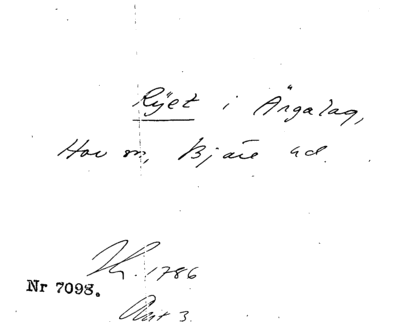 Ryet i Ängalag,
Hov sn, Bjäre hd.
1786
Nr 7098.
Akt 3.